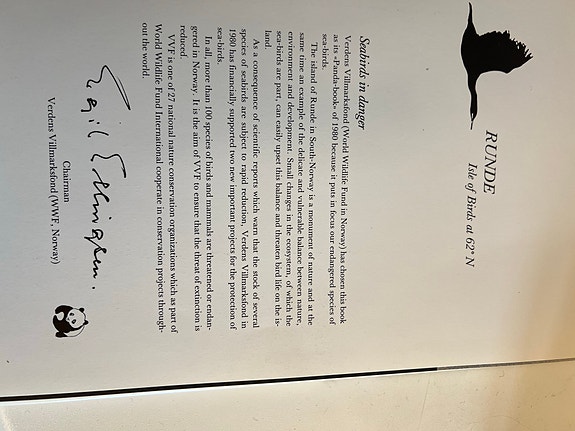 RUNDE
Isle of Birds at 62° N
Seabirds in danger
Verdens Villmarksfond (World Wildlife Fund in Norway) has chosen this book
as its «Panda-book» of 1980 because it puts in focus our endangered species of
sea-birds.
The island of Runde in South-Norway is a monument of nature and at the
same time an example of the delicate and vulnerable balance between nature,
environment and development. Small changes in the ecosystem, of which the
sea-birds are part, can easily upset this balance and threaten bird life on the is-
land.
As a consequence of scientific reports which warn that the stock of several
species of seabirds are subject to rapid reduction, Verdens Villmarksfond in
1980 has financially supported two new important projects for the protection of
sea-birds.
In all, more than 100 species of birds and mammals are threatened or endan-
gered in Norway. It is the aim of VVF to ensure that the threat of extinction is
reduced.
VVF is one of 27 national nature conservation organizations which as part of
World Wildlife Fund International cooperate in conservation projects through-
out the world.
Chairman
Verdens Villmarksfond (WWF, Norway)